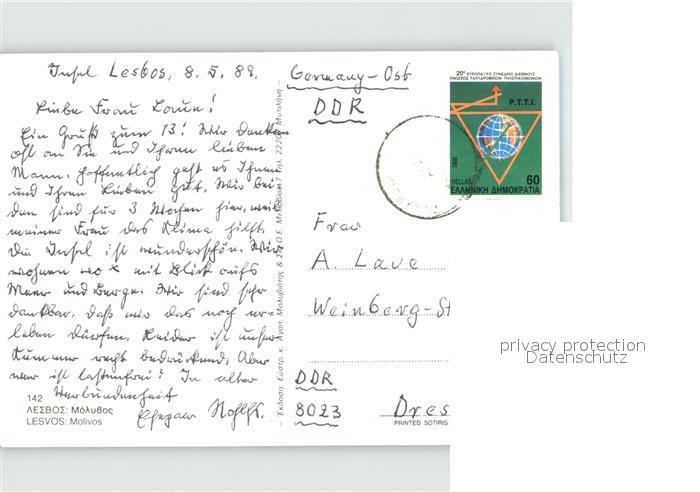 Insel Lesbos, 8. 5. 89.
Liebe Frau Laue!
Ein Gruß zum 13! Wir denken
oft an Sie und Ihren lieben
Mann, hoffentlich geht es Ihnen
und Ihren Lieben gut. Wir bei-
den sind für 3 Wochen hier, weil
meiner Frau das Klima hilft.
Die Insel ist wunderschön. Wir
wohnen wo x mit Blick aufs
Meer und Berge. Wir sind sehr
dankbar, daß wir das noch er-
leben dürfen. Leider ist unser
Kummer recht bedrückend. Aber
wer ist lastenfrei? In alter
Verbundenheit
Ehepaar
142
ΛΕΣΒΟΣ: Μόλυβος
LESVOS: Molivos
Germany-Ost
DDR
20° ΕΥΡΩΠΑΪΚΟ ΣΥΝΕΔΡΙΟ ΔΙΕΘΝΟΥΣ
ΕΝΩΣΕΩΣ ΤΑΧΥΔΡΟΜΕΙΩΝ ΤΗΛΕΠΙΚΟΙΝΩΝΙΩΝ
P.T.T.I.
1988
HELLAS 60
ΕΛΛΗΝΙΚΗ ΔΗΜΟΚΡΑΤΙΑ
Frau
A. Laue
Weinberg-St
DDR
8023 Dres
PRINTED SOTIRIS
privacy protection
Datenschutz